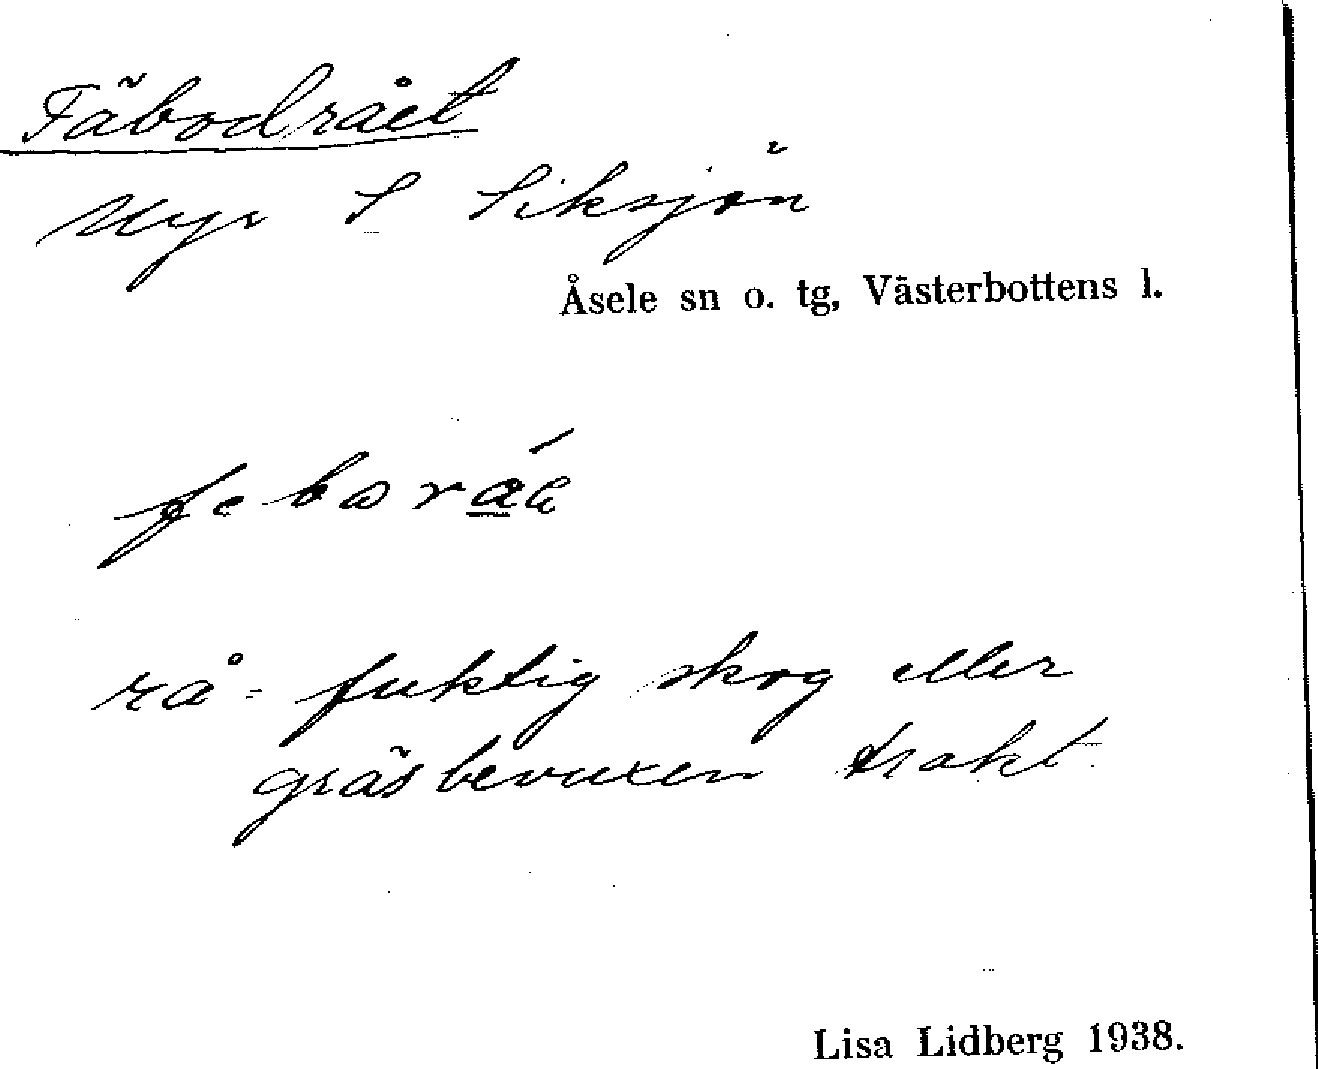 Fäbodrået
Myr S Siksjön
Åsele sn o. tg, Västerbottens l.
rå = fuktig skog eller
gräsbevuxen trakt.
Lisa Lidberg 1938.